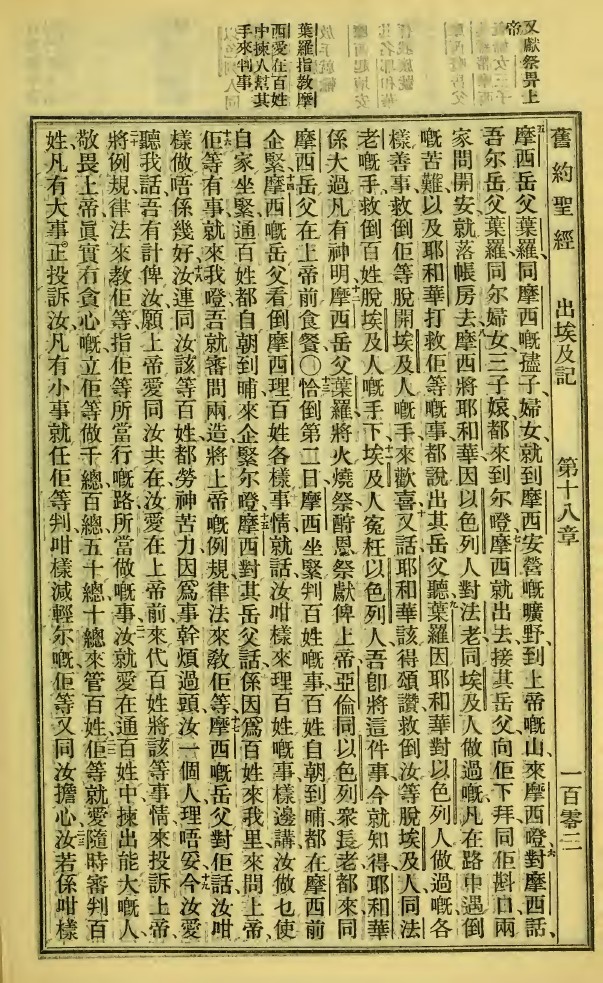 又獻祭畀上
帝
葉羅指教摩
西愛在百姓
中揀人幫其
手來判事
舊約聖經 出埃及記 第十八章 一百零三
摩西岳父葉羅同摩西嘅孻子、婦女、就到摩西安營嘅曠野、到上帝嘅山來、摩西嶝、對摩西話、
吾尔岳父葉羅同尔婦女、三子娘、都來到尔嶝、摩西就出去接其岳父、向佢下拜、同佢斟口、兩
家問開安、就落帳房去、摩西將耶和華因以色列人對法老同埃及人做過嘅、凡在路中遇倒
嘅苦難、以及耶和華打救佢等嘅事、都說出其岳父聽、葉羅因耶和華對以色列人做過嘅各
樣善事、救倒佢等脫開埃及人嘅手、來歡喜、又話、耶和華該得頌讚、救倒汝等脫埃及人同法
老嘅手、救倒百姓脫埃及人嘅手下、埃及人冤枉以色列人、吾卽將這件事、今就知得耶和華
係大過凡有神明、摩西岳父葉羅將火燒祭酧恩祭獻俾上帝、亞倫同以色列衆長老都來、同
摩西岳父在上帝前食餐、〇恰倒第二日、摩西坐緊判百姓嘅事、百姓自朝到晡都在摩西前
企緊、摩西嘅岳父看倒摩西理百姓各樣事情、就話汝咁樣來理百姓嘅事、樣邊講、汝做乜使
自家坐緊、通百姓都自朝到晡來企緊尔嶝、摩西對其岳父話、係因爲百姓來我里來問上帝、
佢等有事就來我嶝、吾就審問兩造、將上帝嘅例規律法來教佢等、摩西嘅岳父對佢話、汝咁
樣做唔係幾好、汝連同汝該等百姓、都勞神苦力、因爲事幹煩過頭、汝一個人理唔妥、今汝愛
聽我話、吾有計俾汝、願上帝愛同汝共在、汝愛在上帝前來代百姓、將該等事情來投訴上帝、
將例規律法來教佢等、指佢等所當行嘅路、所當做嘅事、汝就愛在通百姓中揀出能大嘅人、
敬畏上帝眞實冇貪心嘅、立佢等做千總、百總、五十總、十總、來管百姓、佢等就愛隨時審判百
姓、凡有大事、正投訴汝、凡有小事、就任佢等判、咁樣減輕尔嘅、佢等又同汝擔心、汝若係咁樣